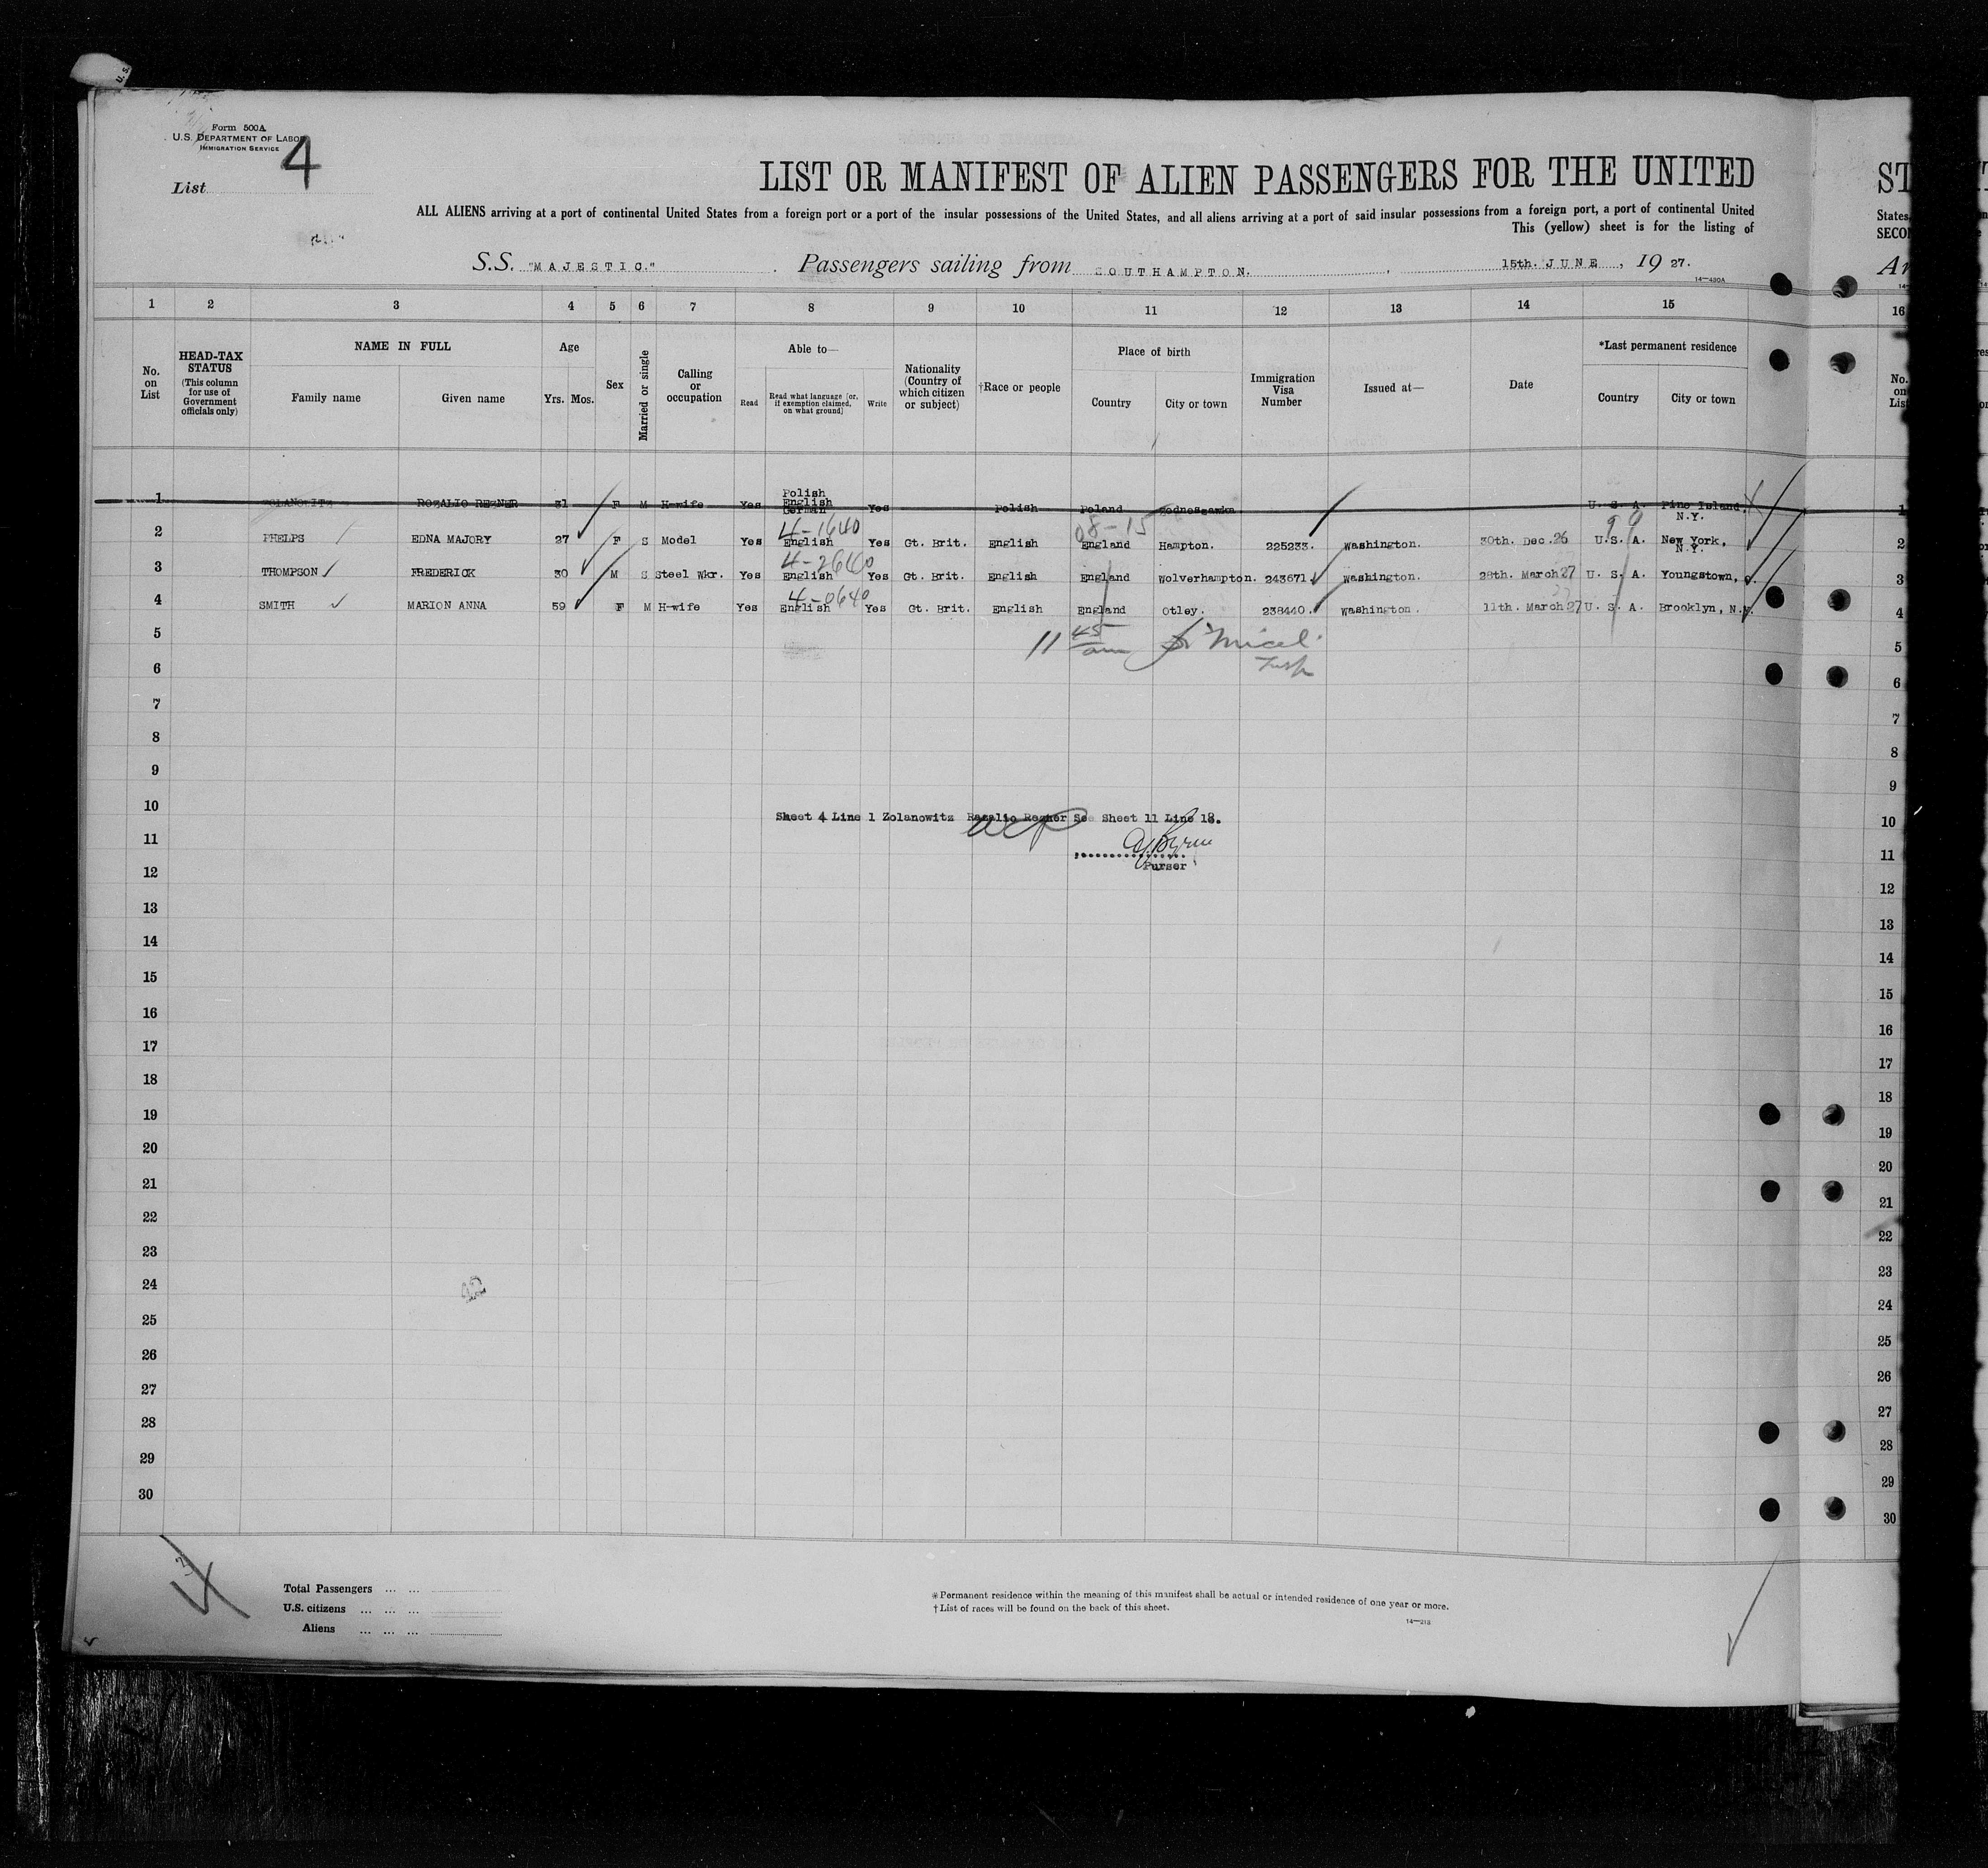 Form 500A
U.S. DEPARTMENT OF LABOR
IMMIGRATION SERVICE
List 4
LIST OR MANIFEST OF ALIEN PASSENGERS FOR THE UNITED
ALL ALIENS arriving at a port of continental United States from a foreign port or a port of the insular possessions of the United States, and all aliens arriving at a port of said insular possessions from a foreign port, a port of continental United
This (yellow) sheet is for the listing of
S.S. "MAJESTIC." Passengers sailing from SOUTHAMPTON. 15th. JUNE, 19 27.
14—430A
1 2 3 4 5 6 7 8 9 10 11 12 13 14 15 16
No. on List
HEAD-TAX STATUS (This column for use of Government officials only)
NAME IN FULL
Family name Given name
Age
Yrs. Mos.
Sex
Married or single
Calling or occupation
Able to—
Read Read what language (or, if exemption claimed, on what ground) Write
Nationality (Country of which citizen or subject)
†Race or people
Place of birth
Country City or town
Immigration Visa Number
Issued at—
Date
*Last permanent residence
Country City or town
No. on List
1 ZOLANOWITZ ROZALIO REZNER 31 F M H-wife Yes Polish English German Yes Polish Poland U. S. A. Pine Island, N.Y. 1
4-1640 08-15
2 PHELPS EDNA MAJORY 27 F S Model Yes English Yes Gt. Brit. English England Hampton. 225233. Washington. 30th. Dec. 26 U.S. A. New York, N.Y. 2
4-2640
3 THOMPSON FREDERICK 30 M S Steel Wkr. Yes English Yes Gt. Brit. English England Wolverhampton. 243671 Washington. 28th. March 27 U. S. A. Youngstown, 3
4-0640
4 SMITH MARION ANNA 59 F M H-wife Yes English Yes Gt. Brit. English England Otley. 238440. Washington. 11th. March 27 U. S. A. Brooklyn, N.Y. 4
5 11 45 am 5
6 6
7 7
8 8
9 9
10 10
Sheet 4 Line 1 Zolanowitz Rozalio Rezner See Sheet 11 Line 18.
11 11
Purser
12 12
13 13
14 14
15 15
16 16
17 17
18 18
19 19
20 20
21 21
22 22
23 23
24 24
25 25
26 26
27 27
28 28
29 29
30 30
4
Total Passengers ... ...
U.S. citizens ... ... ...
Aliens ... ... ...
*Permanent residence within the meaning of this manifest shall be actual or intended residence of one year or more.
†List of races will be found on the back of this sheet.
14—213